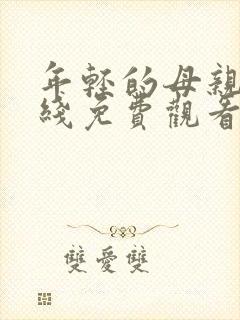 年轻的母親
綫免費觀看
雙愛雙